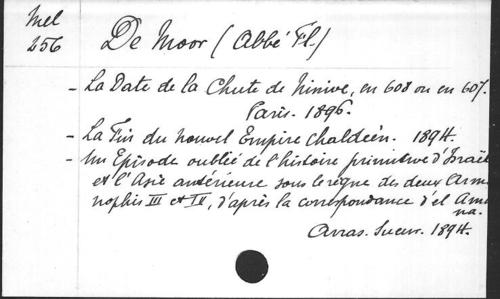 Mel
256
De Moor (Abbé Fl.)
- La Date de la Chute de Ninive, en 608 ou en 607.
Paris. 1896.
- La Fin du nouvel Empire Chaldéen. 1894.
- Un Episode oublié de l'histoire primitive d'Israël
et l'Asie antérieure sous le règne des deux Amé
nophis III et IV, d'après la correspondance d'el Ama
na.
Arras. Sueur. 1894.